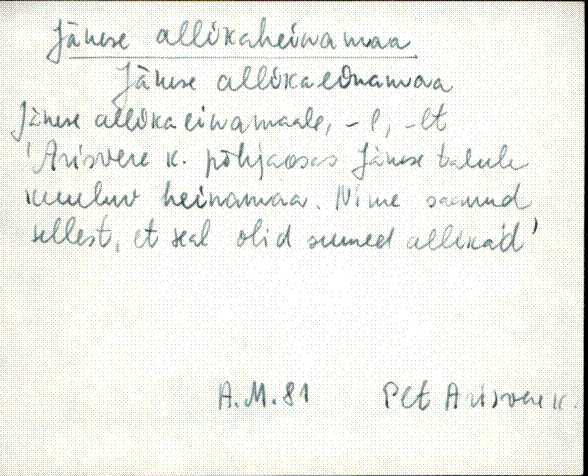 Jänese allikaheinamaa
Jänese allikaeinamaa
Jänese allikaeinamaale, -l, -lt
'Arisvere k. põhjaosas Jänese talule
kuuluv heinamaa. Nime saanud
sellest, et seal olid suured allikad'
A.M. 81 Plt Arisvere k.